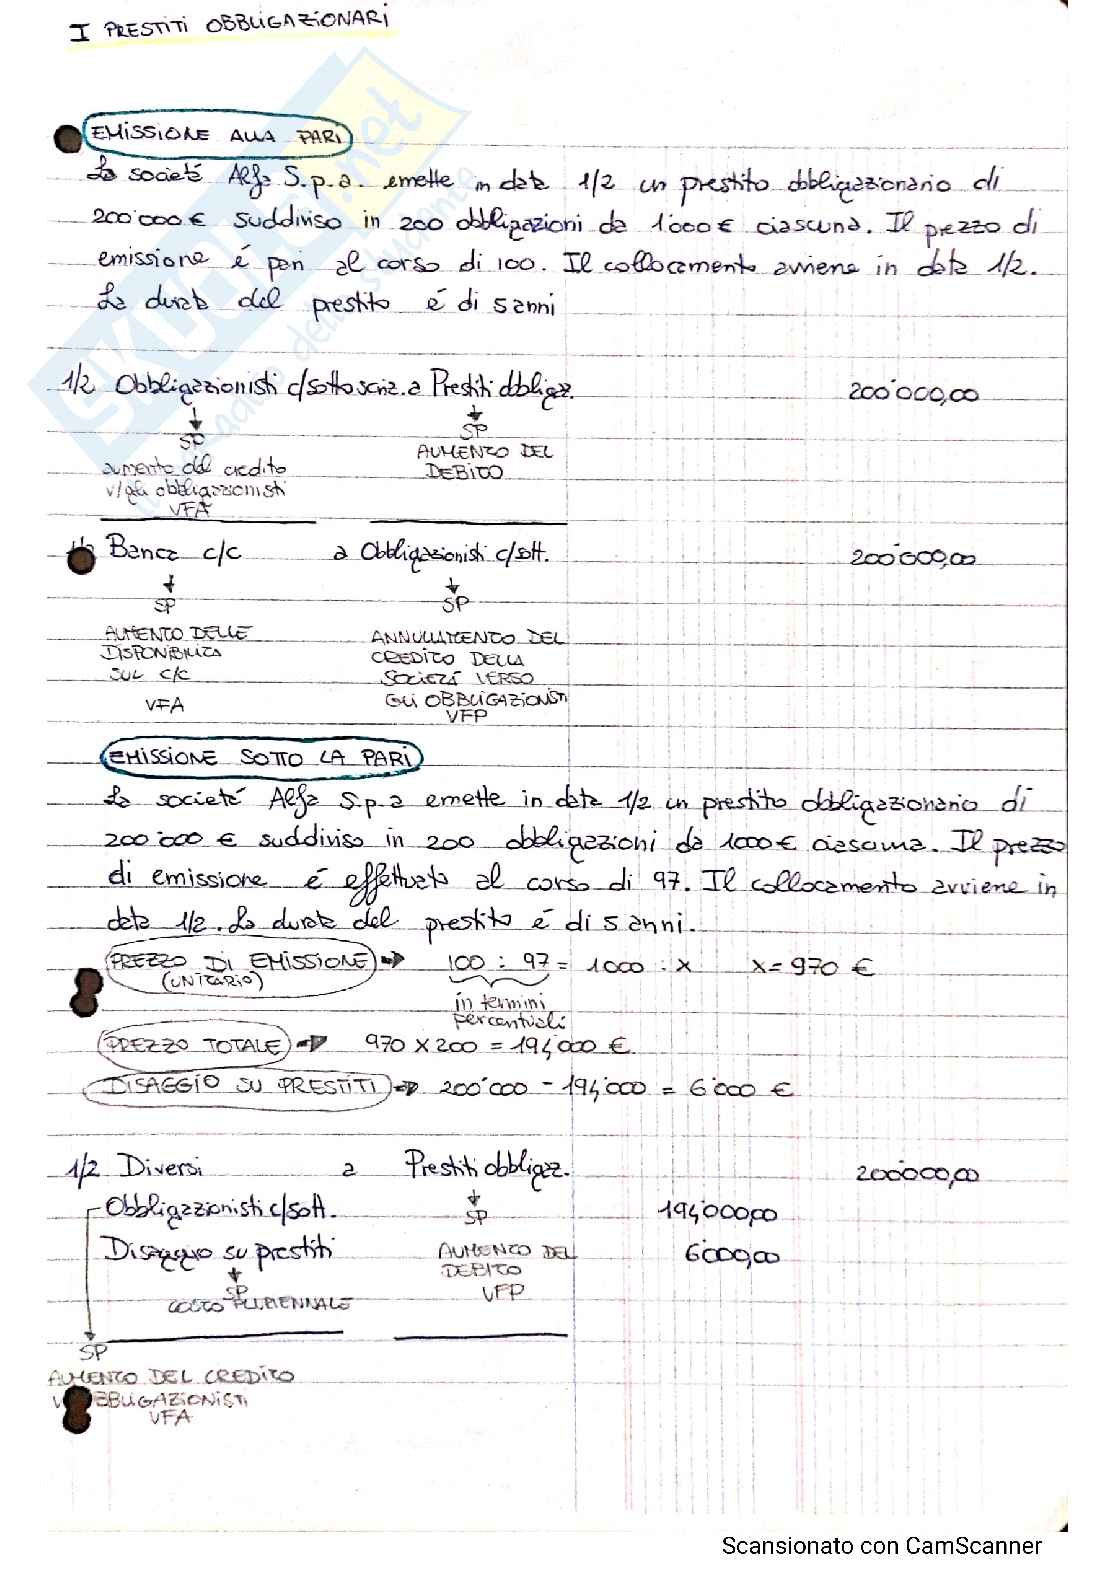 I PRESTITI OBBLIGAZIONARI
EMISSIONE ALLA PARI
La società Alfa S.p.a. emette in data 1/2 un prestito obbligazionario di
200'000 € suddiviso in 200 obbligazioni da 1'000 € ciascuna. Il prezzo di
emissione é pari al corso di 100. Il collocamento avviene in data 1/2.
La durata del prestito é di 5 anni
1/2 Obbligazzionisti c/sottoscriz. a Prestiti obbligaz. 200'000,00
SP SP
aumento del credito AUMENTO DEL
v/gli obbligazzionisti DEBITO
VFA
1/2 Banca c/c a Obbligazionisti c/sott. 200'000,00
SP SP
AUMENTO DELLE ANNULLAMENTO DEL
DISPONIBILITA CREDITO DELLA
SUL C/C SOCIETÁ VERSO
VFA GLI OBBLIGAZIONISTI
VFP
EMISSIONE SOTTO LA PARI
La società Alfa S.p.a emette in data 1/2 un prestito obbligazionario di
200'000 € suddiviso in 200 obbligazioni da 1000 € ciascuna. Il prezzo
di emissione é effettuato al corso di 97. Il collocamento avviene in
data 1/2. La durata del prestito é di 5 anni.
PREZZO DI EMISSIONE 100 : 97 = 1000 : x x = 970 €
(UNITARIO) in termini
percentuali
PREZZO TOTALE 970 x 200 = 194,000 €
DISAGGIO SU PRESTITI 200'000 - 194,000 = 6'000 €
1/2 Diversi a Prestiti obbligaz. 200'000,00
Obbligazzionisti c/sott. SP 194,000,00
Disaggio su prestiti AUMENTO DEL 6'000,00
SP DEBITO
COSTO PLURIENNALE VFP
SP
AUMENTO DEL CREDITO
OBBLIGAZIONISTI
VFA
SKUOLA.net
il paradiso dello studente
Scansionato con CamScanner